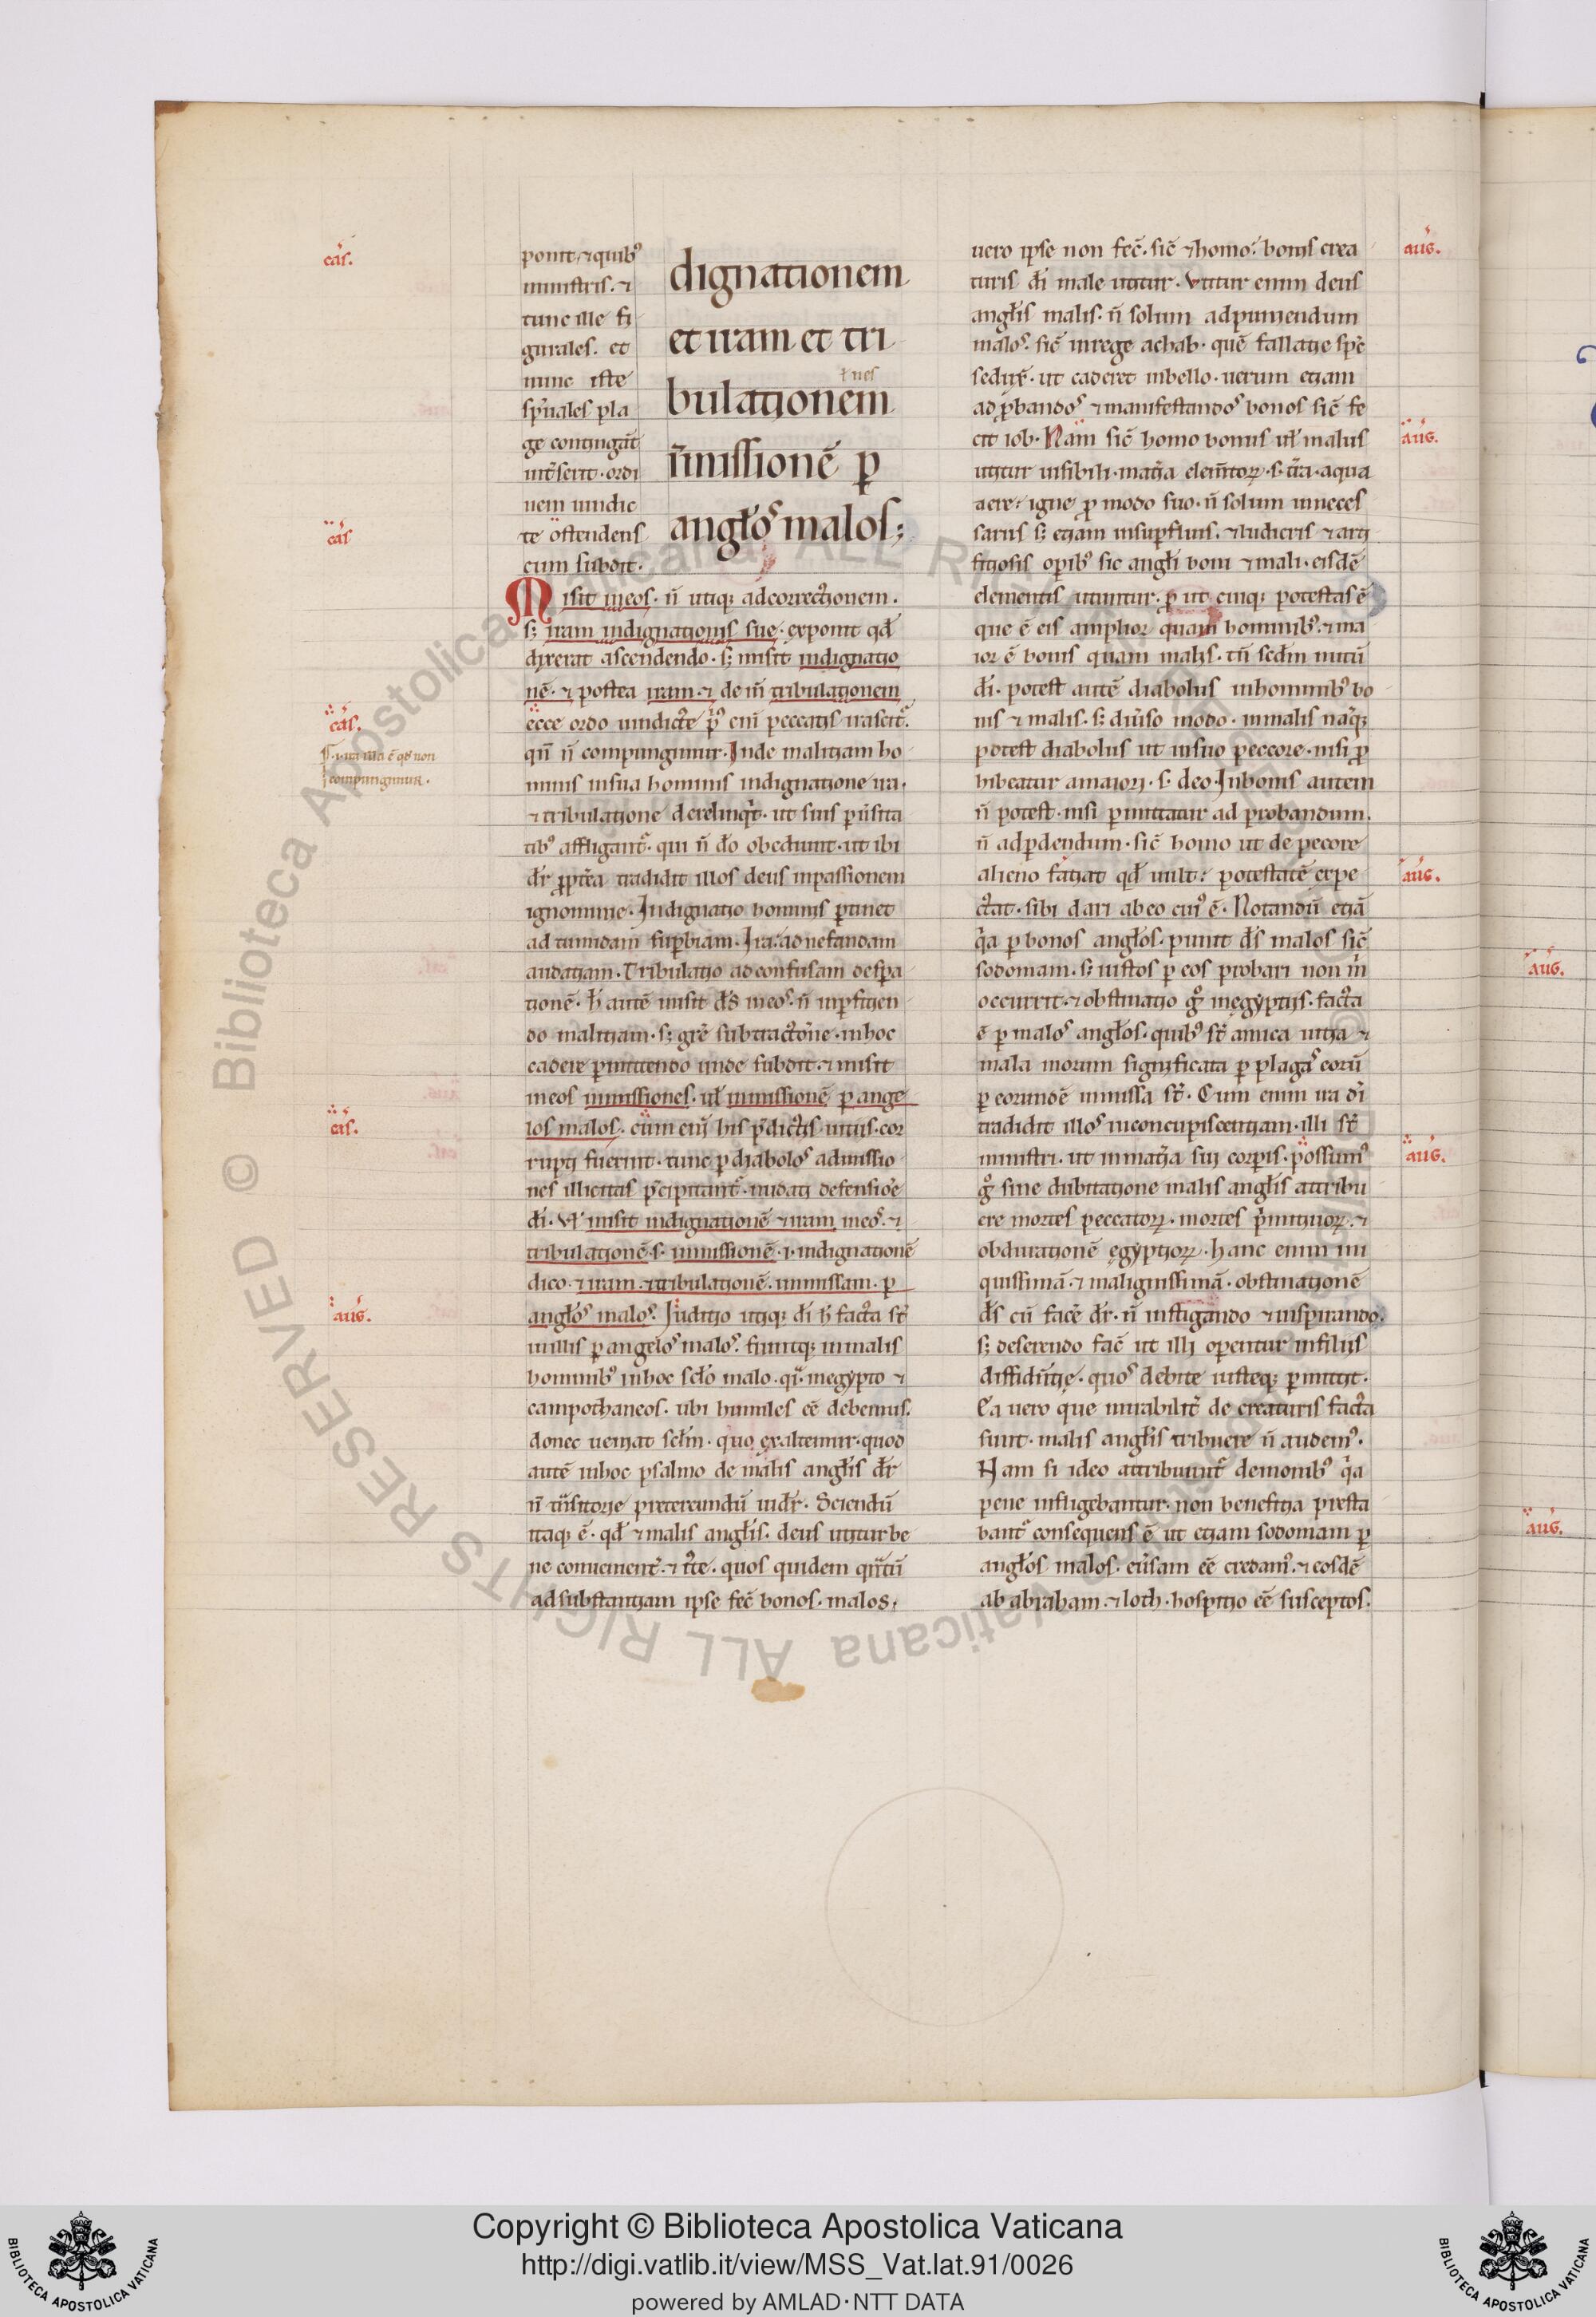 cas.
ponit. ⁊ quibꝰ
ministris. ⁊
tunc ille fi
gurales. et
nunc iste
sp̃uales pla
ge contingãt
int̃serit. ordi
nem uindic
te ostendens
cum subdit.
dignationem
et iram et tri
ł nes
bulationem
ĩmissionẽ ꝑ
angłos malos;
cas
Misit in eos. ñ utiqꝫ ad correctionem.
sꝫ iram indignationis sue. exponit qđ
dixerat ascendendo. sꝫ misit indignatio
nẽ. ⁊ postea iram. ⁊ dein̄ tribulationem
cas.
ecce ordo uindicte pꝰ eni peccatis irascit᷑.
qñ ñ compunguntur. Inde malitiam ho
compunguntur.
minis in sua hominis indignatione ira.
⁊ tribulatione derelinqͥt. ut suis
tibꝰ affligant᷑. qui ñ đo obediunt. ut ibi
dr̃ ꝓpt̃ea tradidit illos deus in passionem
ignominie. Indignatio hominis ꝑtinet
ad tumidam suꝑbiam. Ira. ad nefandam
audatiam. Tribulatio ad confusam despa
tionẽ. h̃ autẽ misit d̃s in eos. ñ inꝑtien
do malitiam. sꝫ gr̃e subtractiõne. in hoc
cadere ꝑmittendo unde subdit. ⁊ misit
in eos inmissiones. uł inmissionẽ ꝑ ange
cas.
los malos. cum enĩ his p̃dictis uitiis. cor
rupti fuerint. tunc ꝑ diabolos admissio
nes illicitas p̃cipitant᷑. nudati defensiõe
đi. Vł misit indignationẽ ⁊ iram in eos. ⁊
tribulationẽ. s. inmissionẽ. i. indignationẽ
dico. ⁊ iram. ⁊ tribulationẽ. inmissam. ꝑ
aug.
angłos malos. Iuditio utiqꝫ đi h̃ facta st̃
in illis ꝑ angelos malos. fiuntqꝫ in malis
hominibꝰ in hoc scło malo. qͣi. in egypto ⁊
campo thaneos. ubi humiles eẽ debemus.
donec ueniat scłm. quo exaltemur. quod
autẽ in hoc psalmo de malis angłis dr̃
ñ preterreundũ uidr̃. Sciendũ
itaqꝫ ẽ. qđ ⁊ malis angłis. deus utitur be
ne conuenient̃. ⁊ r̃te. quos quidem
ad substantiam ipse fec̃ bonos. malos.
uero ipse non fec̃. sic̃ ⁊ homo. bonis crea
aug.
turis đi male utitur. Vtitur enim deus
angłis malis. ñ solum ad puniendum
malos. sic̃ in rege achab. quẽ fallatie sp̃c
seduxͭ. ut caderet in bello. uerum etiam
ad ꝓbandos ⁊ manifestandos bonos sic̃ fe
cit iob. Nam sic̃ homo bonus uł malus
aug.
utitur uisibili. mat̃ia elem̃toꝝ. s. t̃ra. aqua
aere. igne ꝑ modo suo. ñ solum in neces
sariis sꝫ etiam in suꝑfluis. ⁊ ludicris ⁊ arti
fitiosis oꝑibꝰ sic angłi boni ⁊ mali. eisdẽ
elementis utuntur. ꝓ ut cuiqꝫ potestas ẽ
que ẽ eis amplior quam hominibꝰ. ⁊ ma
ior ẽ bonis quam malis. tñ secđm nutũ
đi. potest autẽ diabolus in hominibꝰ bo
nis ⁊ malis. sꝫ diũso modo. in malis naͣqꝫ
potest diabolus ut in suo peccore. nisi ꝓ
hibeatur a maiori. s. deo. In bonis autem
ñ potest. nisi ꝑmittatur ad probandum.
ñ ad ꝑdendum. sic̃ homo ut de pecore
alieno fatiat qđ uult. potestatẽ expe
aug.
ctat. sibi dari ab eo cuiꝰ ẽ. Notandũ etiã
qͥa ꝑ bonos angłos. punit d̃s malos sic̃
sodomam. sꝫ iustos ꝑ eos probari non m̃
aug.
occurrit. ⁊ obstinatio gͦ in egyptiis. facta
ẽ ꝑ malos angłos. quibꝰ st̃ amica uitia ⁊
mala morum significata ꝑ plagas eorũ
ꝑ eorundẽ inmissa st̃. Cum enim ira dñi
tradidit illos in concupiscentiam. illi st̃
ministri. ut in mat̃ia sui corꝑis. possumꝰ
aug.
gͦ sine dubitatione malis angłis attribu
ere mortes peccatoꝝ. mortes pͥmitiuoꝝ. ⁊
obdurationẽ egyptioꝝ. hanc enim ini
quissimã. ⁊ malignissimã. obstinationẽ
d̃s cũ fac̃e dr̃. ñ instigando ⁊ inspirando.
sꝫ deserendo fac̃ ut illi operentur in filiis
diffidẽtie. quos debite iusteqꝫ ꝑmittit.
Ea uero que mirabilit̃ de creaturis facta
sunt. malis angłis tribuere ñ audemꝰ.
Nam si ideo attribuunt᷑ demonibꝰ qͥa
pene infligebantur. non benefitia presta
bant᷑ consequens ẽ ut etiam sodomam ꝑ
aug.
angłos malos. eũsam eẽ credamꝰ. ⁊ eosdẽ
ab abraham. ⁊ loth. hospitio eẽ susceptos.
© Biblioteca Apostolica Vaticana ALL RIGHTS RESERVED
Copyright © Biblioteca Apostolica Vaticana
http://digi.vatlib.it/view/MSS_Vat.lat.91/0026
powered by AMLAD·NTT DATA
BIBLIOTECA APOSTOLICA VATICANA
BIBLIOTECA APOSTOLICA VATICANA